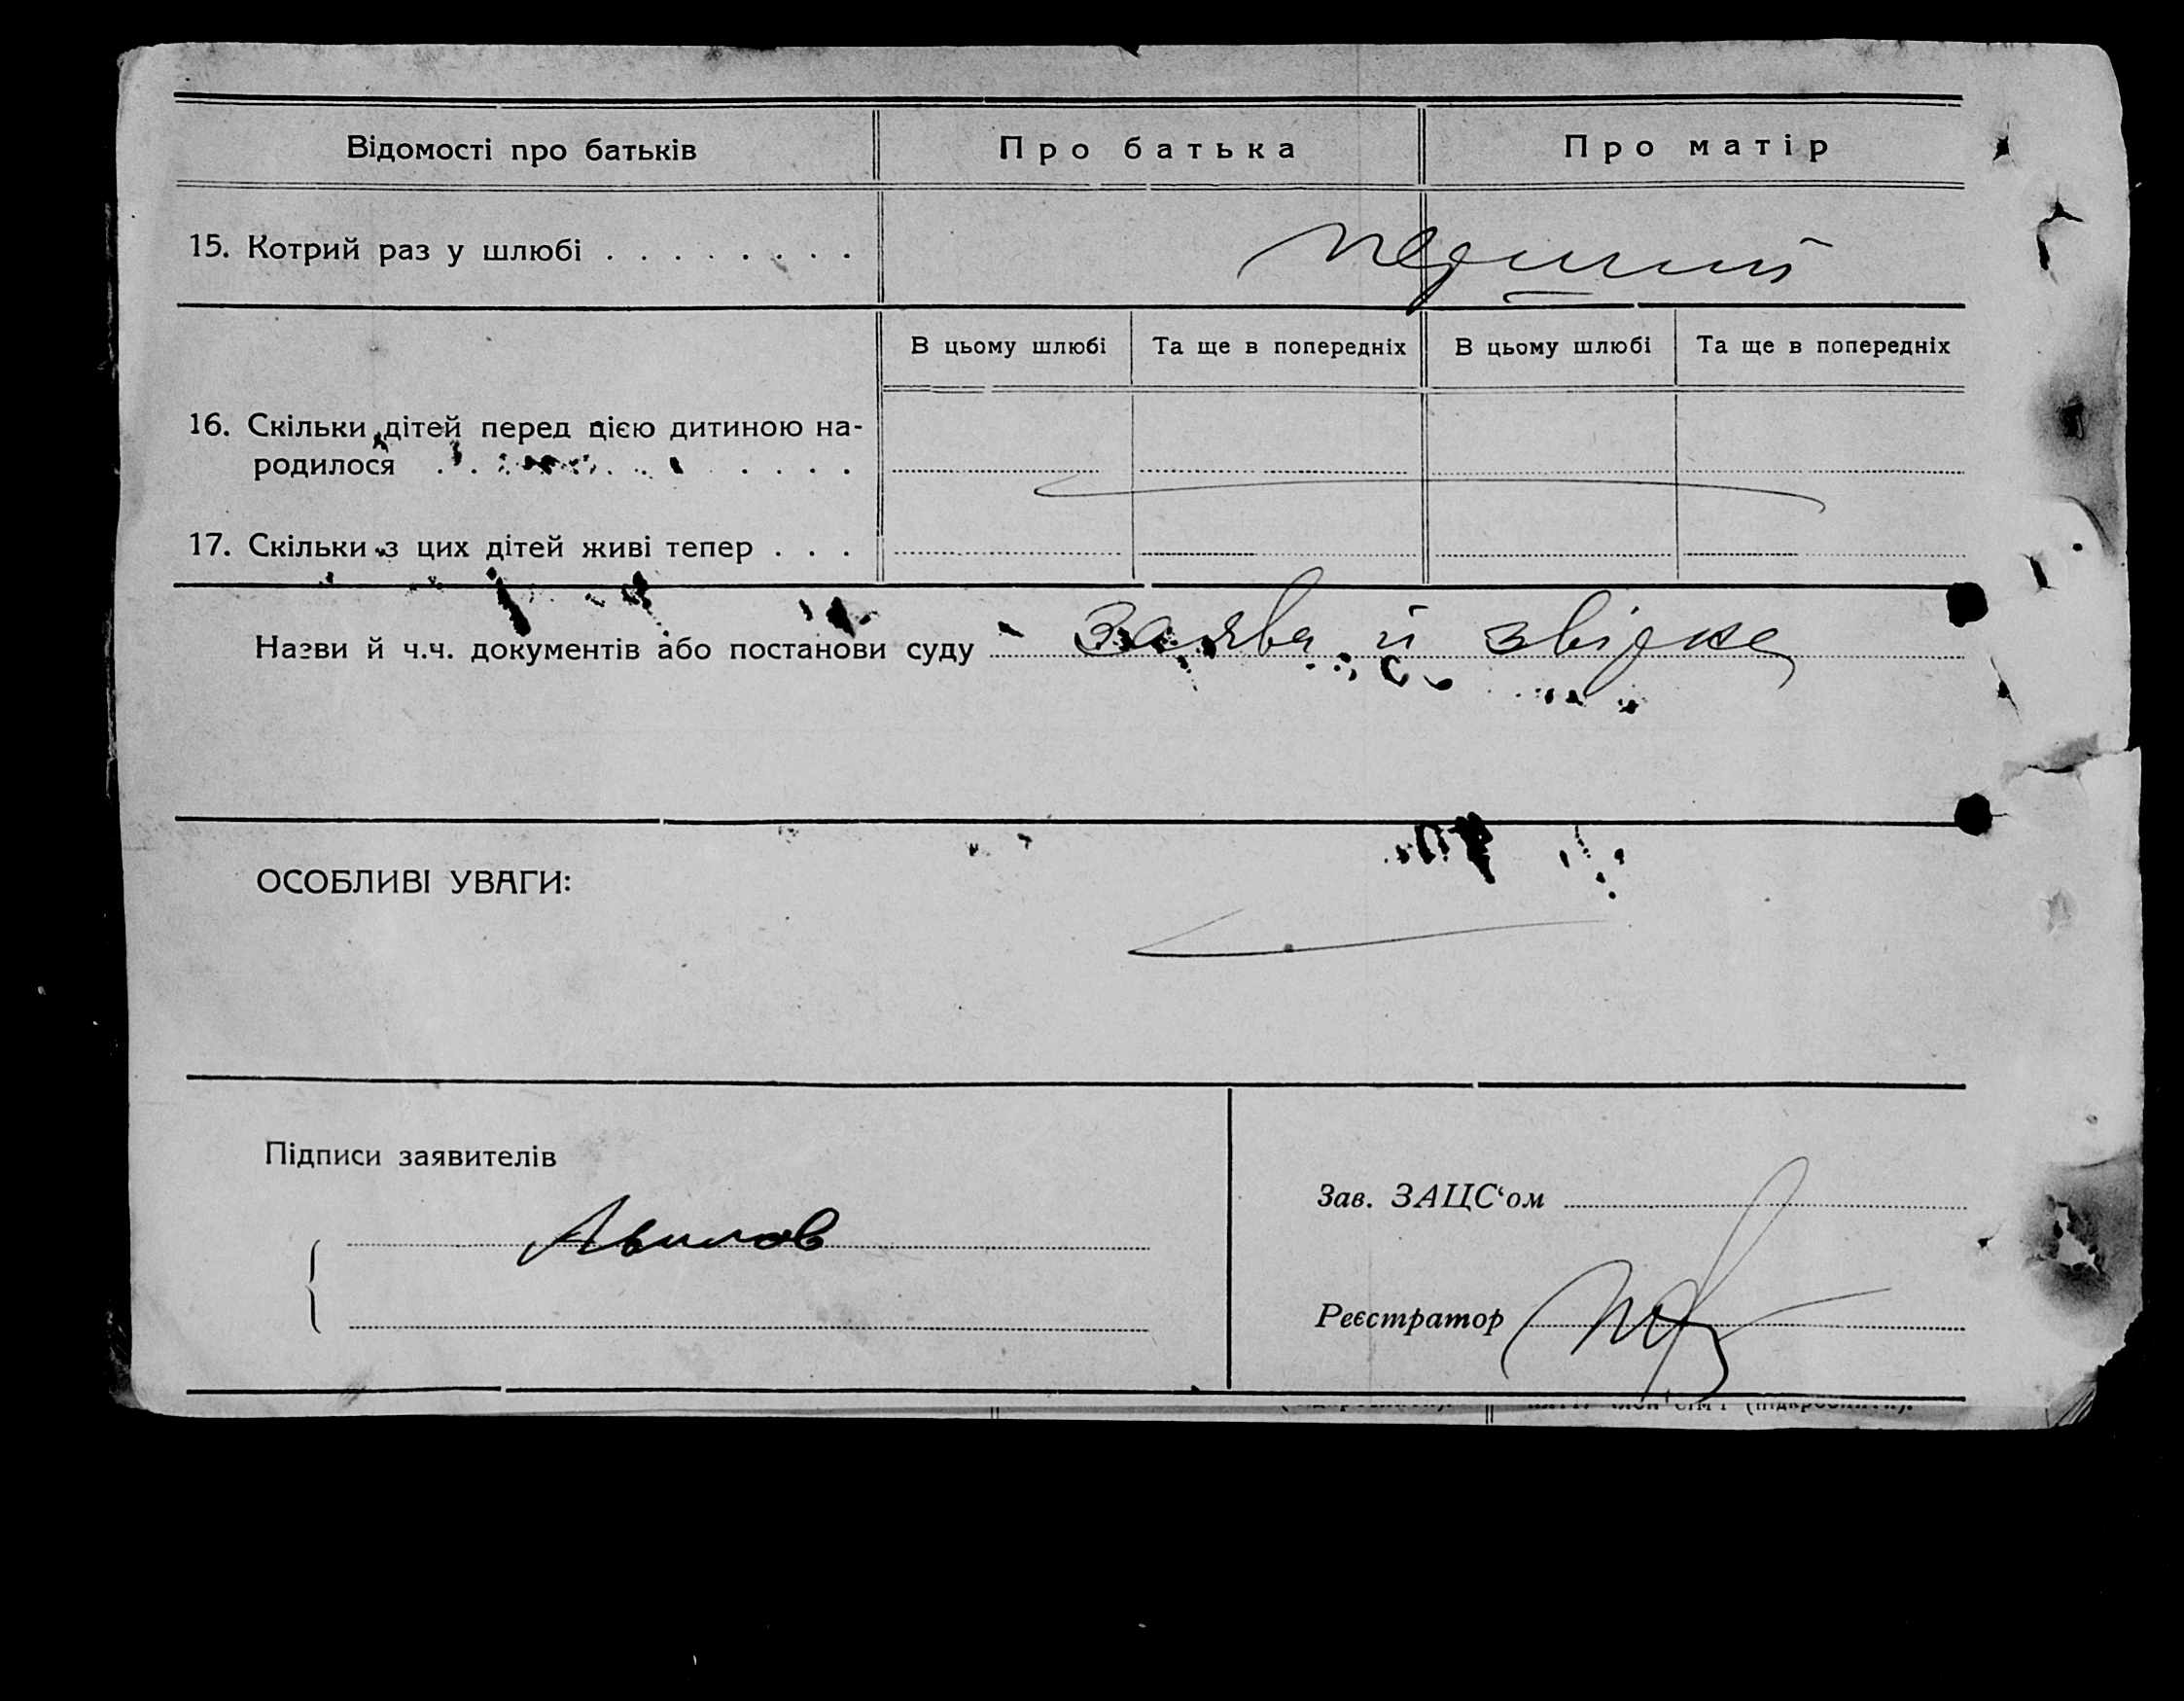 Відомості про батьків
Про батька
Про матір
15. Котрий раз у шлюбі . . . . . . . .
перший
В цьому шлюбі
Та ще в попередніх
В цьому шлюбі
Та ще в попередніх
16. Скільки дітей перед цією дитиною на-
родилося
17. Скільки з цих дітей живі тепер . . .
Назви й ч.ч. документів або постанови суду заява й звідка
ОСОБЛИВІ УВАГИ:
Підписи заявителів
Зав. ЗАЦС‘ом
Реєстратор